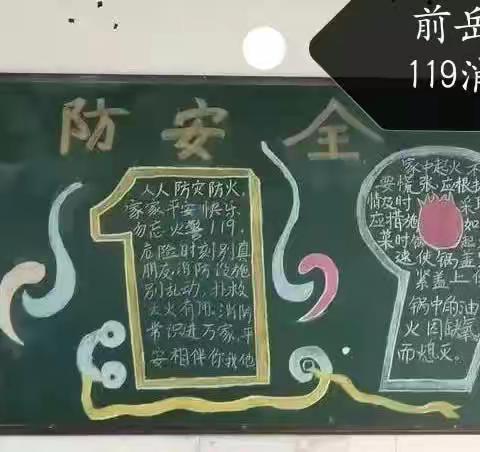 前岳
119消
防安全
人人防灾防火,
家家平安快乐
勿忘火警119,
危险时刻别真
朋友,消防设施
别乱动,扑救
大火有用,消防
常识进万家,平
安相伴你我他
家中起火不
要慌张,应根
情及时采
应措施如
菜时锅起
速使锅盖
紧盖上
锅中的油
火因缺氧
而熄灭。